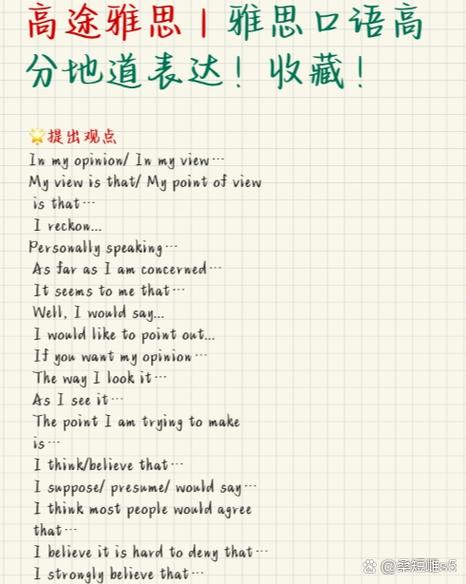 高途雅思 | 雅思口语高
分地道表达！收藏！
提出观点
In my opinion/ In my view…
My view is that/ My point of view
is that…
I reckon...
Personally speaking…
As far as I am concerned…
It seems to me that…
Well, I would say...
I would like to point out...
If you want my opinion…
The way I look it…
As I see it…
The point I am trying to make
is…
I think/believe that…
I suppose/ presume/ would say…
I think most people would agree
that…
I believe it is hard to deny that…
I strongly believe that…